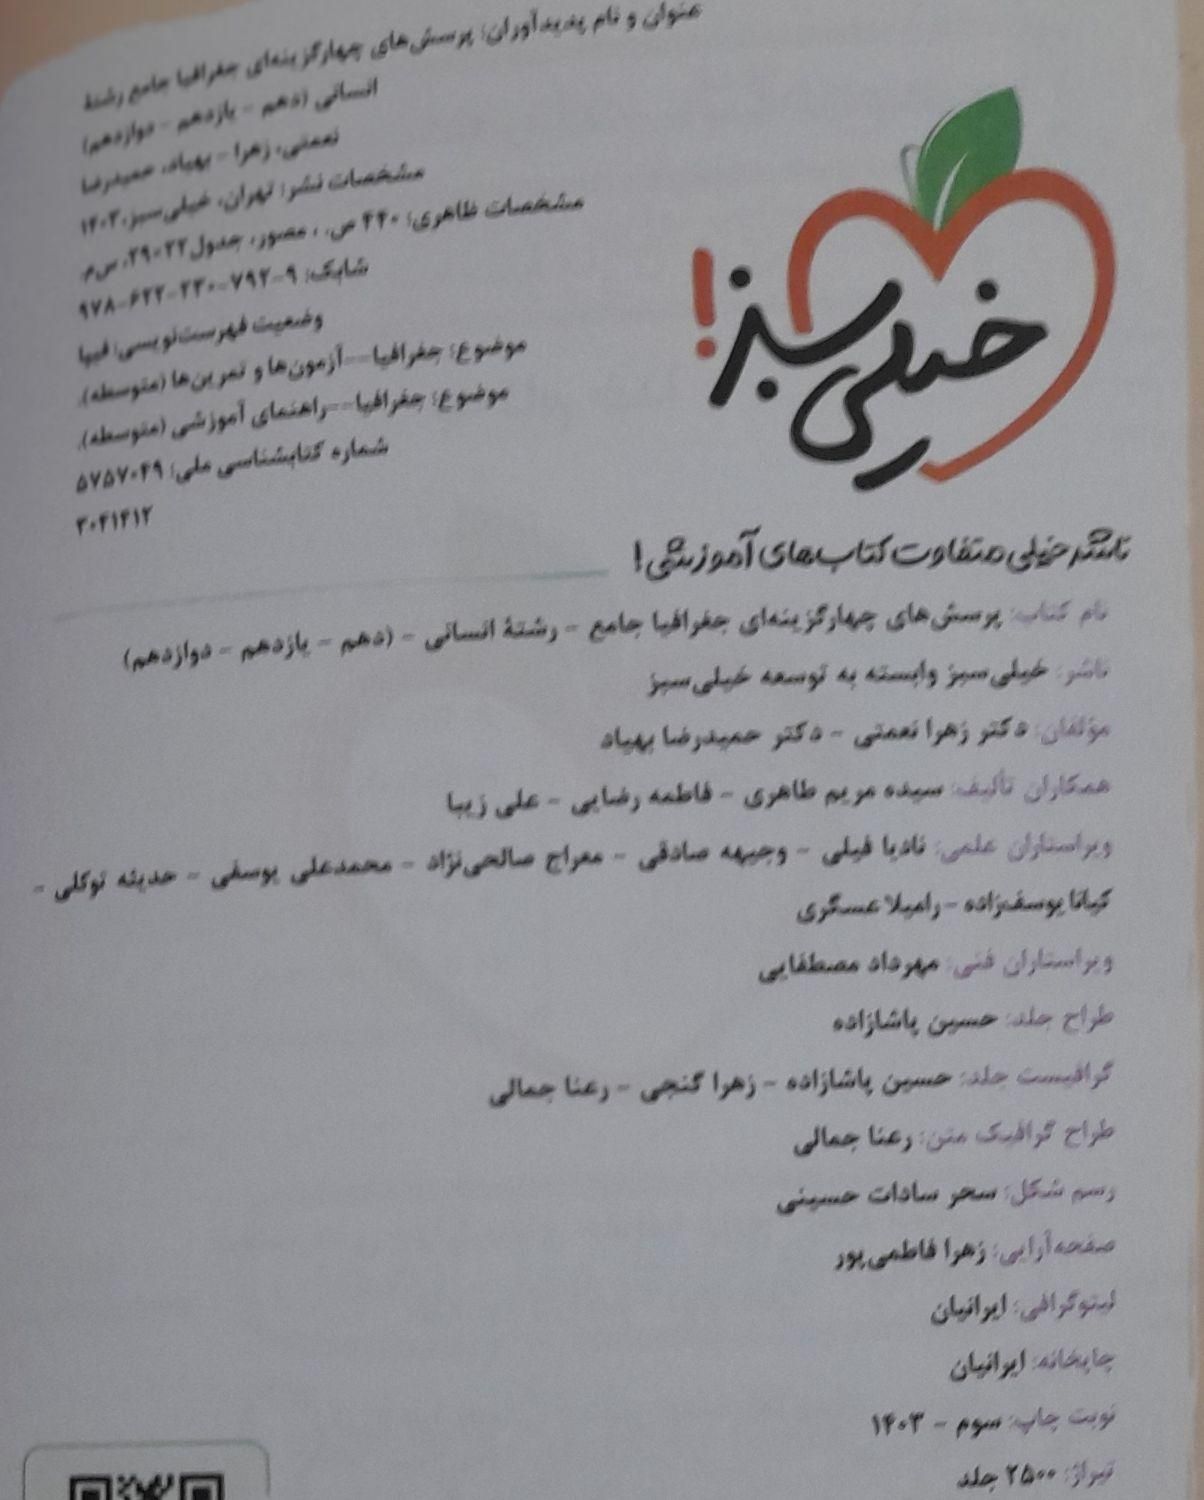 عنوان و نام پدیدآوران: پرسش‌های چهارگزینه‌ای جغرافیا جامع رشتهٔ
انسانی (دهم - یازدهم - دوازدهم)
نعمتی، زهرا - بهیاد، حمیدرضا
مشخصات نشر: تهران، خیلی‌سبز، ۱۴۰۳
مشخصات ظاهری: ۴۴۰ ص. ، مصور، جدول ۲۲×۲۹، س‌م.
شابک: ۹-۷۹۲-۲۳۰-۶۲۲-۹۷۸
وضعیت فهرست‌نویسی: فیپا
موضوع: جغرافیا--آزمون‌ها و تمرین‌ها (متوسطه).
موضوع: جغرافیا--راهنمای آموزشی (متوسطه).
شماره کتابشناسی ملی: ۵۷۵۷۰۴۹
۳۰۴۱۴۱۲
خیلی سبز!
ناشر خیلی متفاوت کتاب‌های آموزشی!
نام کتاب: پرسش‌های چهارگزینه‌ای جغرافیا جامع - رشتهٔ انسانی - (دهم - یازدهم - دوازدهم)
ناشر: خیلی‌سبز وابسته به توسعه خیلی‌سبز
مؤلفان: دکتر زهرا نعمتی - دکتر حمیدرضا بهیاد
همکاران تألیف: سیده مریم طاهری - فاطمه رضایی - علی زیبا
ویراستاران علمی: نادیا فیلی - وجیهه صادقی - معراج صالحی‌نژاد - محمدعلی یوسفی - حدیثه توکلی -
کیانا یوسف‌زاده - رامیلا عسگری
ویراستاران فنی: مهرداد مصطفایی
طراح جلد: حسین پاشازاده
گرافیست جلد: حسین پاشازاده - زهرا گنجی - رعنا جمالی
طراح گرافیک متن: رعنا جمالی
رسم شکل: سحر سادات حسینی
صفحه‌آرایی: زهرا فاطمی‌پور
لیتوگرافی: ایرانیان
چاپخانه: ایرانیان
نوبت چاپ: سوم - ۱۴۰۳
تیراژ: ۲۵۰۰ جلد